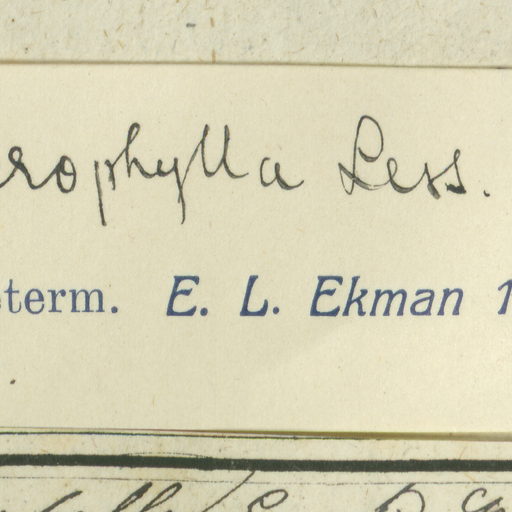 rophylla Less.
term. E. L. Ekman 1